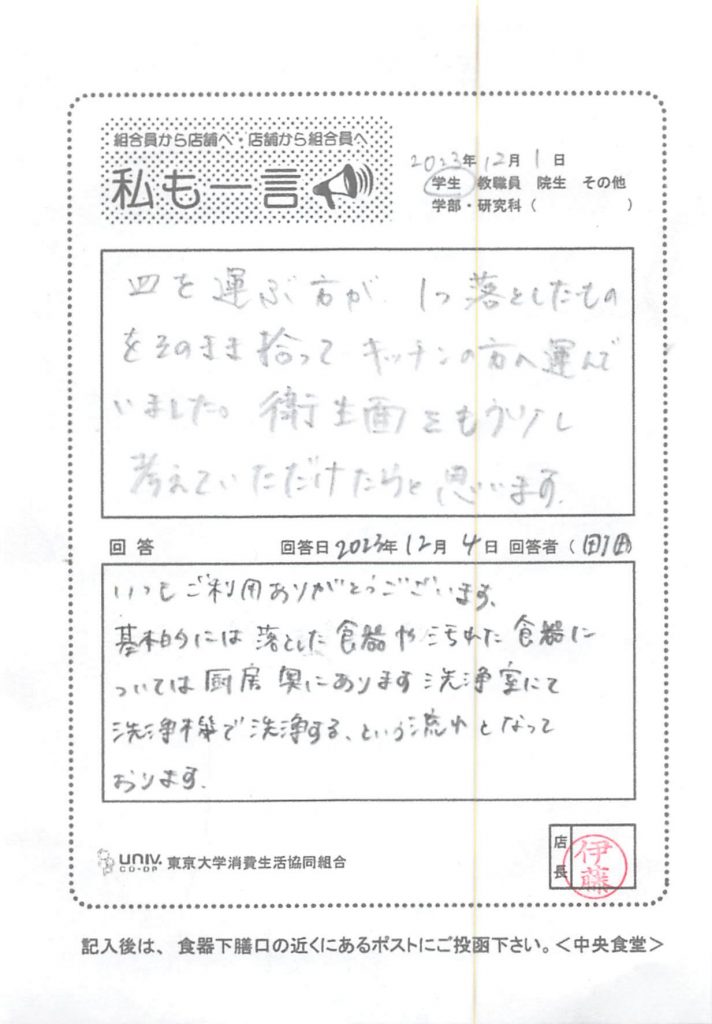 組合員から店舗へ・店舗から組合員へ
私も一言
2023年12月1日
学生 教職員 院生 その他
学部・研究科( )
皿を運ぶ方が、1つ落としたもの
をそのまま拾ってキッチンの方へ運んで
いました。衛生面をもう少し
考えていただけたらと思います。
回答 回答日2023年12月4日 回答者( )
いつもご利用ありがとうございます。
基本的には落とした食器や汚れた食器に
ついては厨房奥にあります洗浄室にて
洗浄機で洗浄する、という流れとなって
おります。
店長
伊藤
UNIV. CO-OP 東京大学消費生活協同組合
記入後は、食器下膳口の近くにあるポストにご投函下さい。<中央食堂>